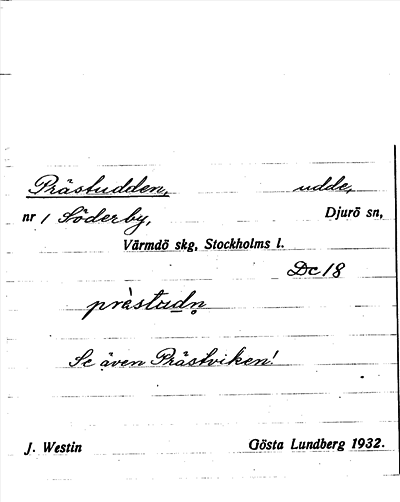 Prästudden, udde,
nr 1 Söderby, Djurö sn,
Värmdö skg, Stockholms l.
Dc 18
prästudn̥
Se även Prästviken!
J. Westin Gösta Lundberg 1932.